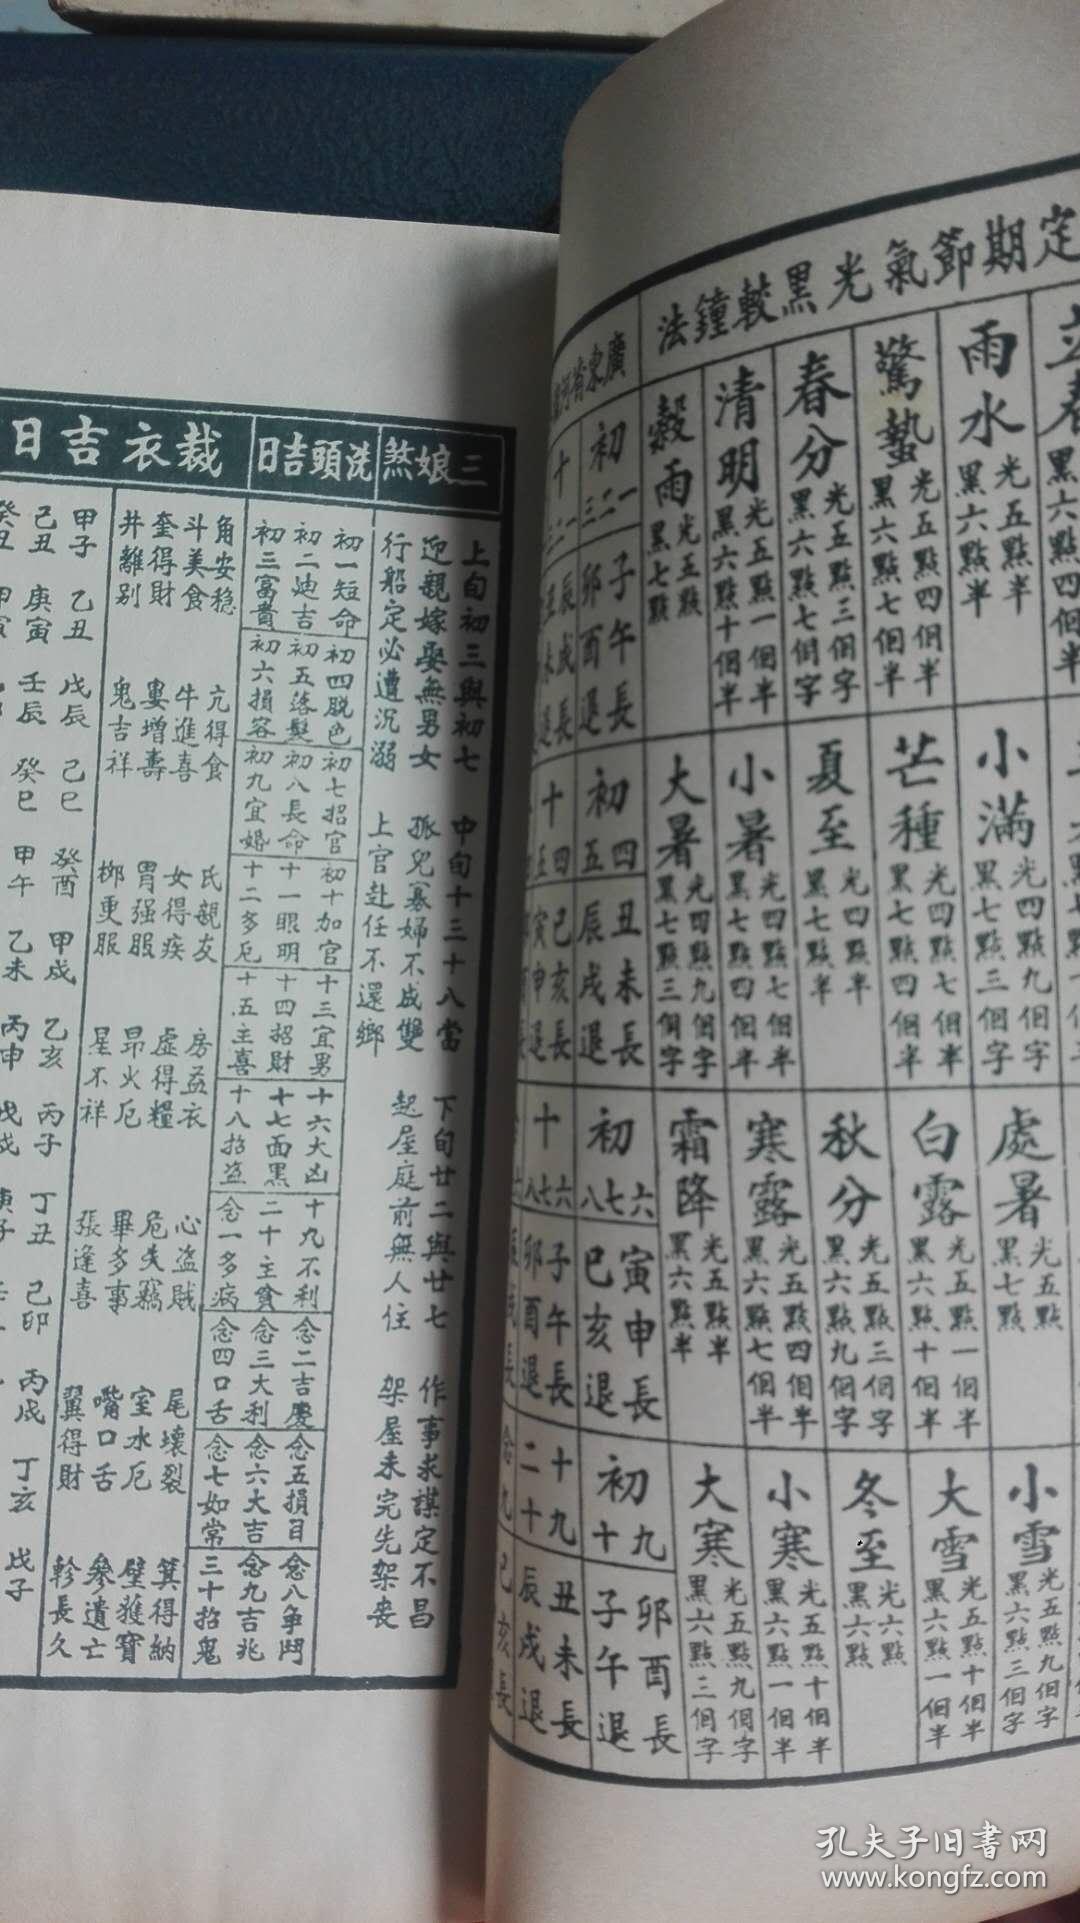 定期節氣光黑較鐘法
雨水
光五點半
黑六點半
驚蟄
光五點四個半
黑六點七個半
春分
光五點三個字
黑六點七個字
清明
光五點一個半
黑六點十個半
穀雨
光五點
黑七點
小滿
光四點九個字
黑七點三個字
芒種
光四點七個半
黑七點四個半
夏至
光四點半
黑七點半
小暑
光四點七個半
黑七點四個半
大暑
光四點九個字
黑七點三個字
處暑
光五點
黑七點
白露
光五點一個半
黑六點十個半
秋分
光五點三個字
黑六點九個字
寒露
光五點四個半
黑六點七個半
霜降
光五點半
黑六點半
小雪
光五點九個字
黑六點三個字
大雪
光五點十個半
黑六點一個半
冬至
光六點
黑六點
小寒
光五點十個半
黑六點一個半
大寒
光五點九個字
黑六點三個字
廣東省河
初一二三
子午長
卯酉退
初四五
丑未長
辰戌退
初六七八
寅申長
巳亥退
初九十
卯酉長
子午退
十四五
巳亥長
寅申退
十六七八
子午長
卯酉退
十九二十
丑未長
辰戌退
三娘煞
上旬初三與初七
中旬十三十八當
下旬廿二與廿七
作事求謀定不昌
迎親嫁娶無男女
孤兒寡婦不成雙
起屋庭前無人住
架屋未完先架丧
行船定必遭沉溺
上官赴任不還鄉
洗頭吉日
初一短命
初二迪吉
初三富貴
初四脱色
初五落髮
初六損容
初七招官
初八長命
初九宜婚
初十加官
十一眼明
十二多厄
十三宜男
十四招財
十五主喜
十六大凶
十七面黑
十八招盗
十九不利
二十主貧
念一多病
念二吉慶
念三大利
念四口舌
念五損目
念六大吉
念七如常
念八爭鬥
念九吉兆
三十招鬼
裁衣吉日
角安稳
亢得食
氐親友
房益衣
心盗賊
尾壞裂
箕得納
斗美食
牛進喜
女得疾
虛得糧
危失竊
室水厄
壁獲寶
奎得財
婁增壽
胃强服
昴火厄
畢多事
嘴口舌
參遺亡
井離别
鬼吉祥
柳更服
星不祥
張逢喜
翼得財
軫長久
甲子 乙丑 戊辰 己巳 癸酉 甲戌 乙亥 丙子 丁丑 己卯 丙戌 丁亥 戊子
己丑 庚寅 壬辰 癸巳 甲午 乙未 丙申 戊戌
孔夫子旧書网
www.kongfz.com